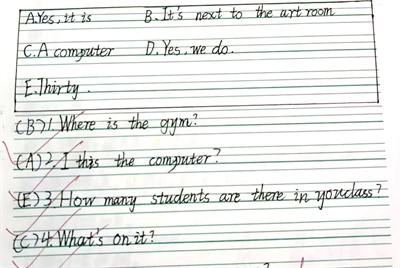 A.Yes, it is B. It's next to the art room
C. A computer D. Yes, we do.
E. Thirty.
(B) 1. Where is the gym?
(A) 2. I this the computer?
(E) 3. How many students are there in youclass?
(C) 4. What's on it?